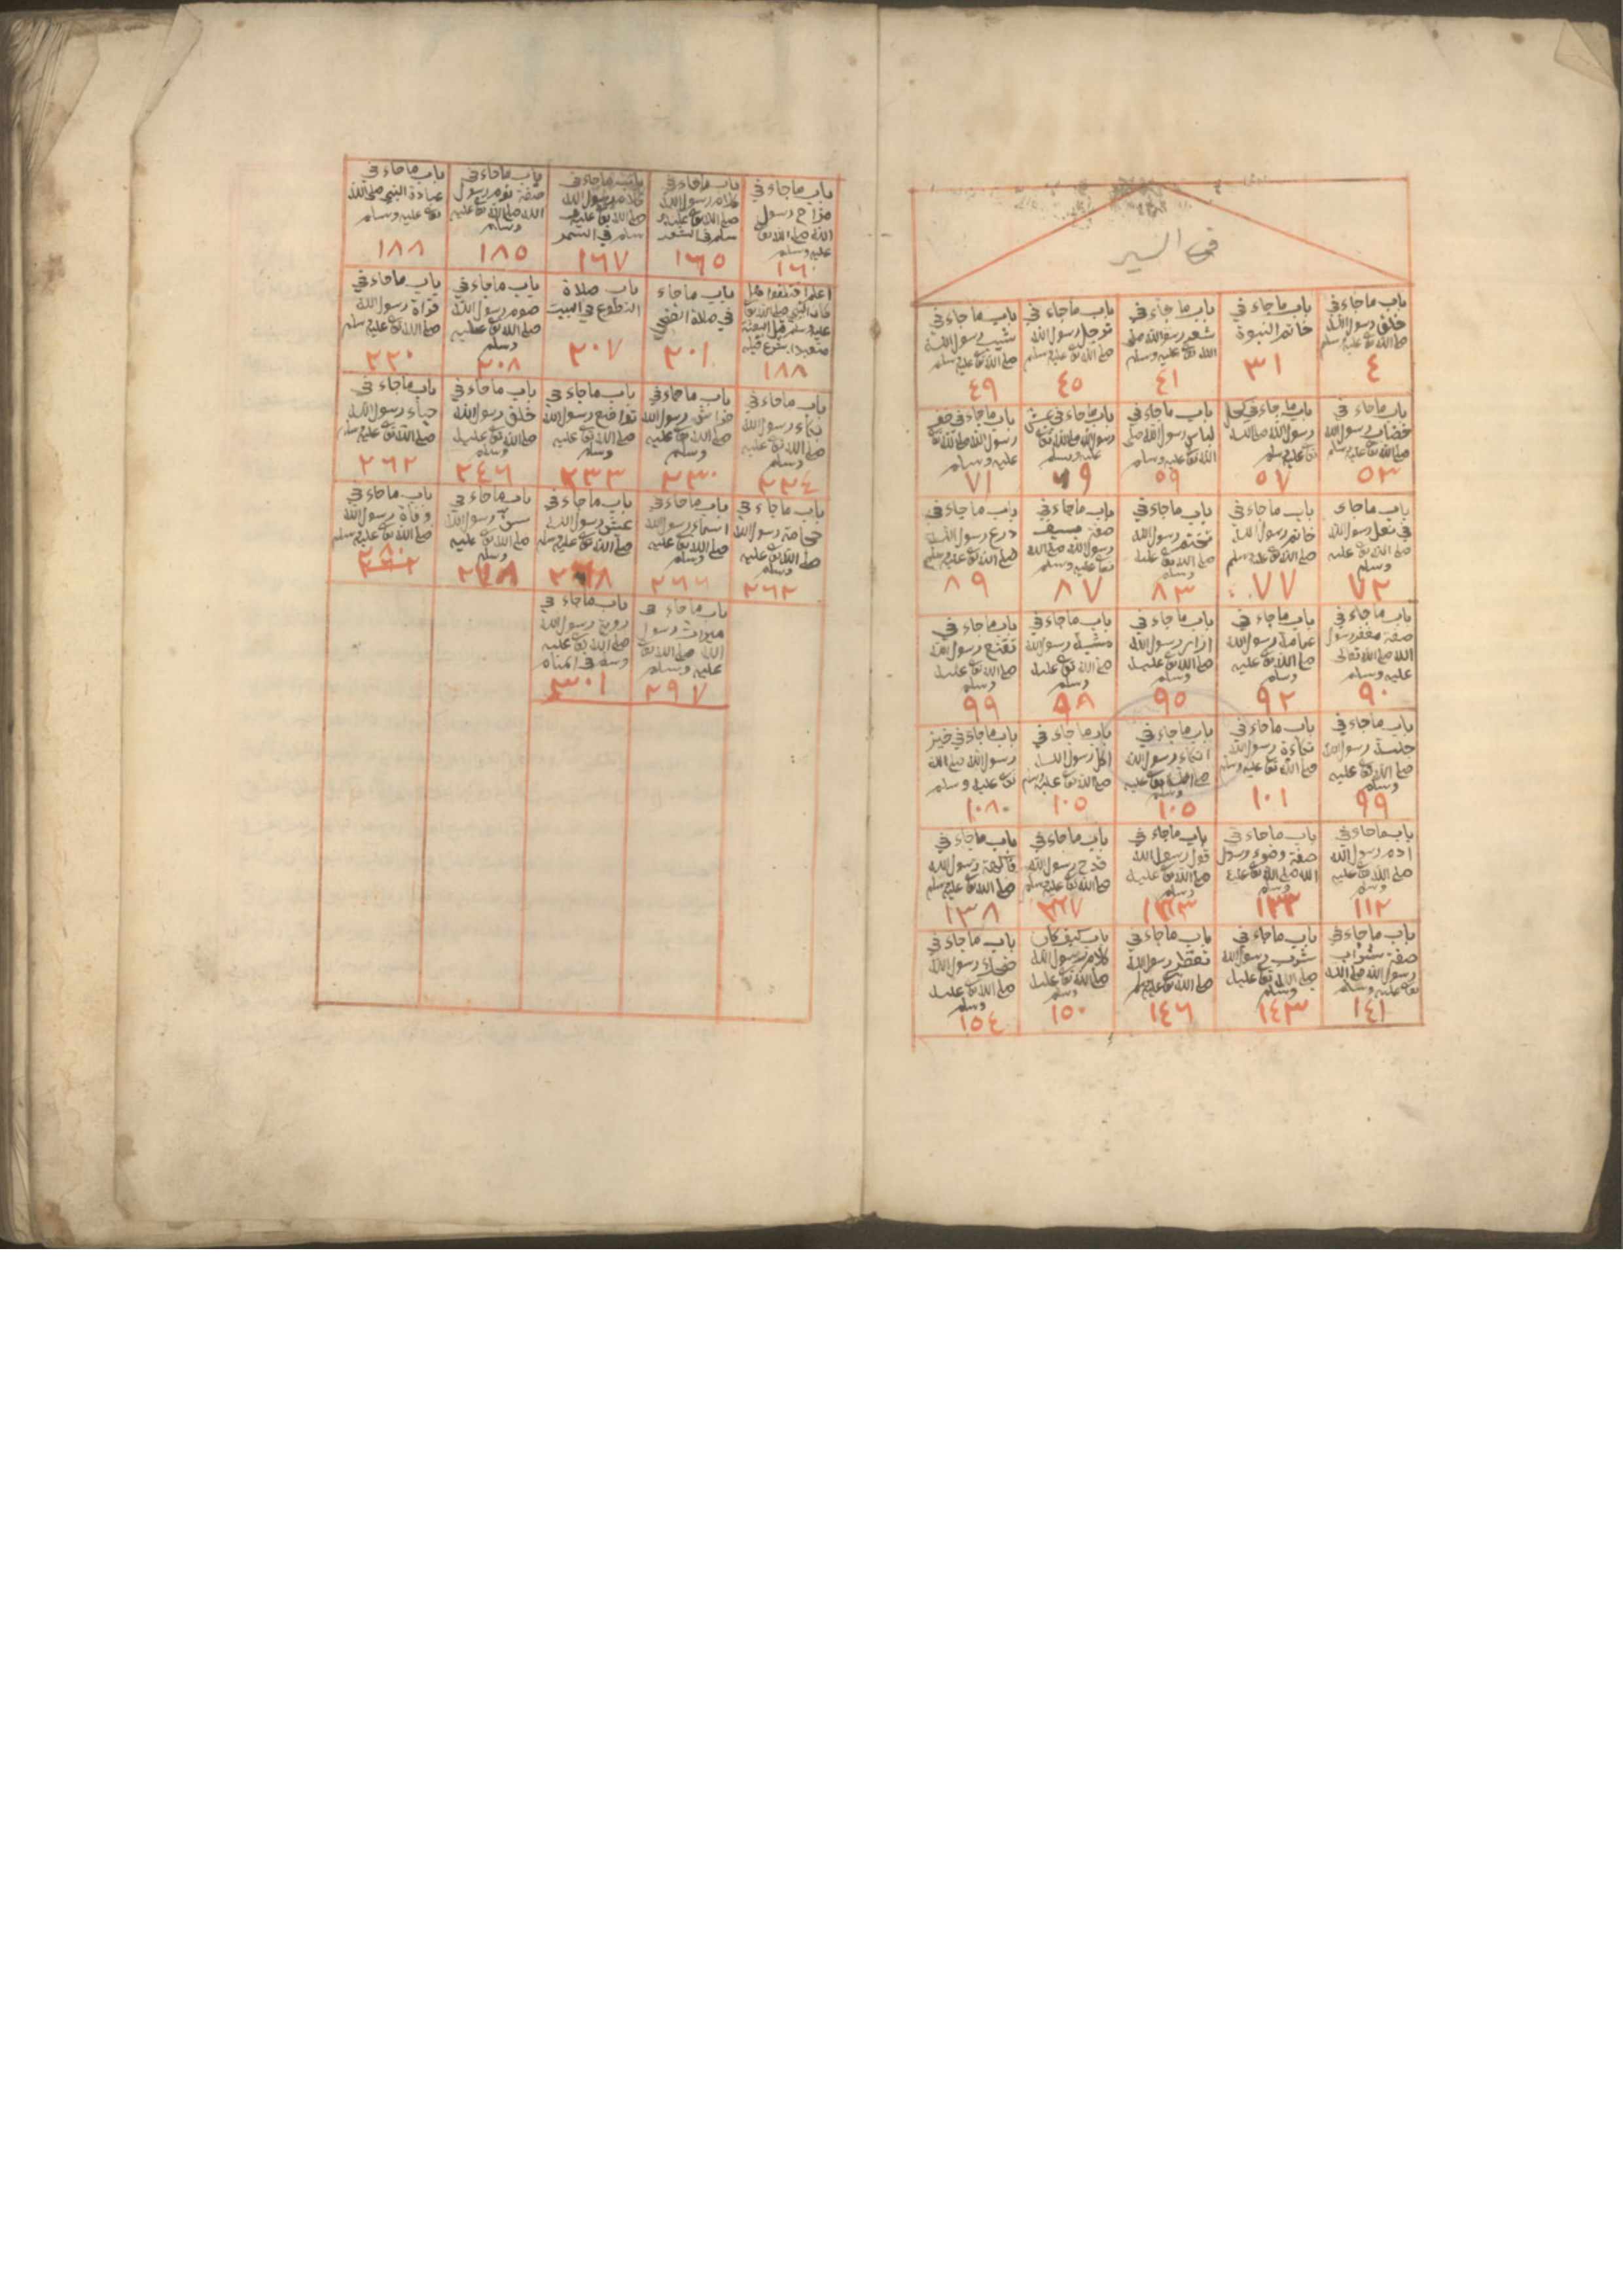 في السير
باب ماجاء في
خلق رسول الله
صلى الله تعا عليه وسلم
٤
باب ماجاء في
خاتم النبوة
٣١
باب ماجاء في
شعر رسول الله صلى
الله تعا عليه وسلم
٤١
باب ماجاء في
ترجل رسول الله
صلى الله تعا عليه وسلم
٤٥
باب ماجاء في
شيب رسول الله
صلى الله تعا عليه وسلم
٤٩
باب ماجاء في
خضاب رسول الله
صلى الله تعا عليه وسلم
٥٣
باب ماجاء في كحل
رسول الله صلى الله
تعا عليه وسلم
٥٧
باب ماجاء في
لباس رسول الله صلى
الله تعا عليه وسلم
٥٩
باب ماجاء في عيش
رسول الله صلى الله تعا
عليه وسلم
٦٩
باب ماجاء في خف
رسول الله صلى الله تعا
عليه وسلم
٧١
باب ماجاء
في نعل رسول الله
صلى الله تعا عليه
وسلم
٧٢
باب ماجاء في
خاتم رسول الله
صلى الله تعا عليه وسلم
٧٧
باب ماجاء في
تختم رسول الله
صلى الله تعا عليه
وسلم
٨٣
باب ماجاء في
صفة سيف
رسول الله صلى الله
تعا عليه وسلم
٨٧
باب ماجاء في
درع رسول الله
صلى الله تعا عليه وسلم
٨٩
باب ماجاء في
صفة مغفر رسول
الله صلى الله تعالى
عليه وسلم
٩٠
باب ماجاء في
عمامة رسول الله
صلى الله تعا عليه
وسلم
٩٢
باب ماجاء في
ازار رسول الله
صلى الله تعا عليه
وسلم
٩٥
باب ماجاء في
مشية رسول الله
صلى الله تعا عليه
وسلم
٩٨
باب ماجاء في
تقنع رسول الله
صلى الله تعا عليه
وسلم
٩٩
باب ماجاء في
جلسة رسول الله
صلى الله تعا عليه
وسلم
٩٩
باب ماجاء في
تكاءة رسول الله
صلى الله تعا عليه وسلم
١٠١
باب ماجاء في
اتكاء رسول الله
صلى الله تعا عليه
وسلم
١٠٥
باب ماجاء في
اكل رسول الله
صلى الله تعا عليه وسلم
١٠٥
باب ماجاء في خبز
رسول الله صلى الله
تعا عليه وسلم
١٠٨
باب ماجاء في
ادم رسول الله
صلى الله تعا عليه
وسلم
١١٢
باب ماجاء في
صفة وضوء رسول
الله صلى الله تعا عليه
وسلم
١٣٣
باب ماجاء في
قول رسول الله
صلى الله تعا عليه
وسلم
باب ماجاء في
قدح رسول الله
صلى الله تعا عليه وسلم
باب ماجاء في
فاكهة رسول الله
صلى الله تعا عليه وسلم
١٣٨
باب ماجاء في
صفة شراب
رسول الله صلى الله
تعا عليه وسلم
١٤١
باب ماجاء في
شرب رسول الله
صلى الله تعا عليه
وسلم
١٤٣
باب ماجاء في
تعطر رسول الله
صلى الله تعا عليه وسلم
١٤٦
باب كيف كان
كلام رسول الله
صلى الله تعا عليه
وسلم
١٥٠
باب ماجاء في
ضحك رسول الله
صلى الله تعا عليه
وسلم
١٥٤
باب ماجاء في
مزاح رسول
الله صلى الله تعا
عليه وسلم
١٦٠
باب ماجاء في
كلام رسول الله
صلى الله تعا عليه و
سلم في الشعر
١٦٥
باب ماجاء في
كلام رسول الله
صلى الله تعا عليه و
سلم في السمر
١٦٧
باب ماجاء في
صفة نوم رسول
الله صلى الله تعا عليه
وسلم
١٨٥
باب ماجاء في
عبادة النبي صلى الله
تعا عليه وسلم
١٨٨
اعلم اختلفوا هل
كان النبي صلى الله تعا
عليه وسلم قبل البعثة
متعبدا بشرع قبله
١٨٨
باب ماجاء
في صلاة الضحى
٢٠١
باب صلاة
التطوع في البيت
٢٠٧
باب ماجاء في
صوم رسول الله
صلى الله تعا عليه
وسلم
٢٠٨
باب ماجاء في
قراة رسول الله
صلى الله تعا عليه وسلم
٢٢٠
باب ماجاء في
بكاء رسول الله
صلى الله تعا عليه
وسلم
٢٢٤
باب ماجاء في
فراش رسول الله
صلى الله تعا عليه
وسلم
٢٣٠
باب ماجاء في
تواضع رسول الله
صلى الله تعا عليه
وسلم
٢٣٣
باب ماجاء في
خلق رسول الله
صلى الله تعا عليه
وسلم
٢٤٦
باب ماجاء في
حياء رسول الله
صلى الله تعا عليه وسلم
٢٦٢
باب ماجاء في
حجامة رسول الله
صلى الله تعا عليه
وسلم
٢٦٢
باب ماجاء في
اسماء رسول الله
صلى الله تعا عليه
وسلم
٢٦٦
باب ماجاء في
عيش رسول الله
صلى الله تعا عليه وسلم
٢٦٨
باب ماجاء في
سن رسول الله
صلى الله تعا عليه
وسلم
باب ماجاء في
وفاة رسول الله
صلى الله تعا عليه وسلم
باب ماجاء في
ميراث رسول
الله صلى الله تعا
عليه وسلم
٢٩٧
باب ماجاء في
روية رسول الله
صلى الله تعا عليه
وسلم في المنام
٣٠١